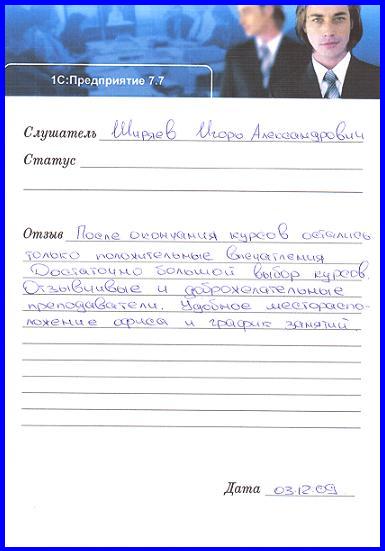 1С:Предприятие 7.7
Слушатель Ширяев Игорь Александрович
Статус
Отзыв После окончания курсов остались
только положительные впечатления
Достаточно большой выбор курсов.
Отзывчивые и доброжелательные
преподаватели. Удобное месторасло-
ложение офиса и график занятий.
Дата 03.12.09